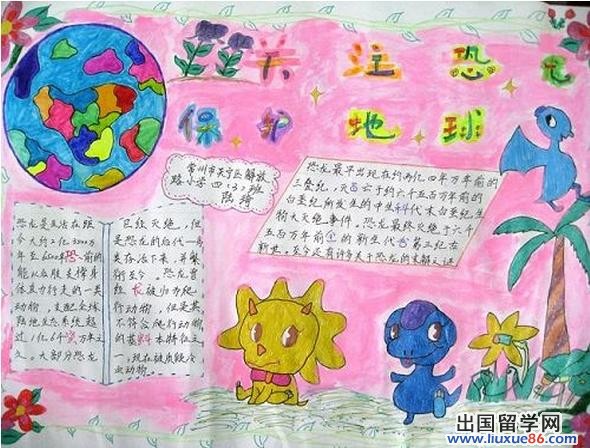 关注恐龙
保护地球
常州市天宁区解放
路小学四(3)班
陆琦
恐龙最早出现在约两亿四年万年前的
三叠纪,灭亡于约六千五百万年前的
白垩纪所发生的中生代末白垩纪生
物大灭绝事件。恐龙最终灭绝于六千
五百万年前的新生代第三纪在
新世,至今还有许多关于恐龙的支解之谜
恐龙是生活在距
今大约2亿3500万
年至6500年万前的
能以后肢支撑身
体直力行走的一类
动物,支配全球
陆地生态系统超
过1亿6千万年之
久。大部分恐龙
已经灭绝,但
是恐龙的后代一鸟
类存活下来,并繁
衍至今。恐龙曾
经被归为爬
行动物,但是其
不符合爬行动物
的基本特征之
一,现在被点段次
血动物
出国留学网
www.liuxue86.com